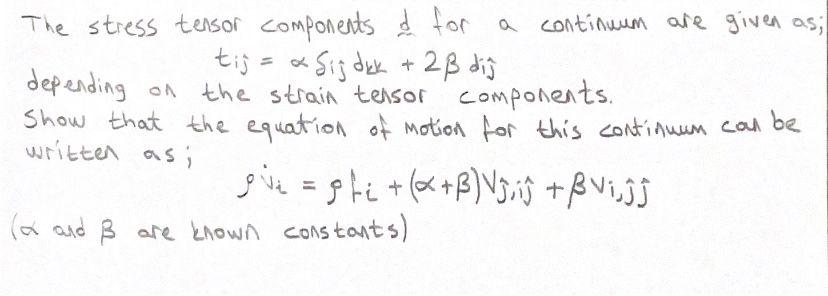 The stress tensor components d for a continuum are given as;
tij = α δij dkk + 2β dij
depending on the strain tensor components.
Show that the equation of motion for this continuum can be
written as;
ρ v̇i = ρ fi + (α+β) Vj,ij + β Vi,jj
(α and β are known constants)